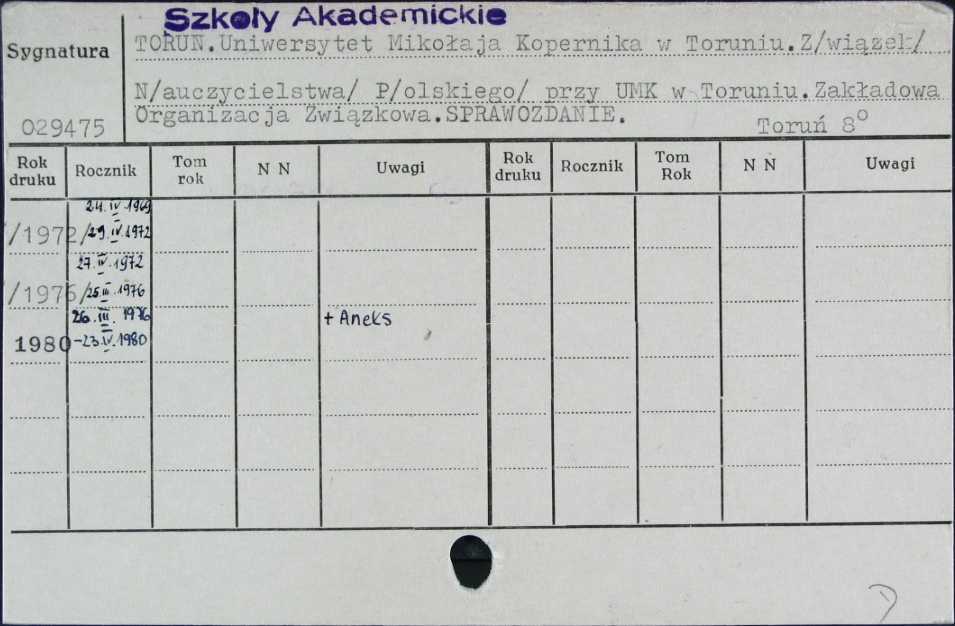 Szkoły Akademickie
Sygnatura
TORUŃ.Uniwersytet Mikołaja Kopernika w Toruniu.Z/wiązek/
N/auczycielstwa/ P/olskiego/ przy UMK w Toruniu.Zakładowa
Organizacja Związkowa.SPRAWOZDANIE.
029475
Toruń 8°
Rok druku Rocznik Tom rok N N Uwagi Rok druku Rocznik Tom Rok N N Uwagi
24.IV.1969
/1972/ 29.IV.1972
27.IV.1972
/1976/ 25.III.1976
26.III.1976 + Aneks
1980 -23.IV.1980